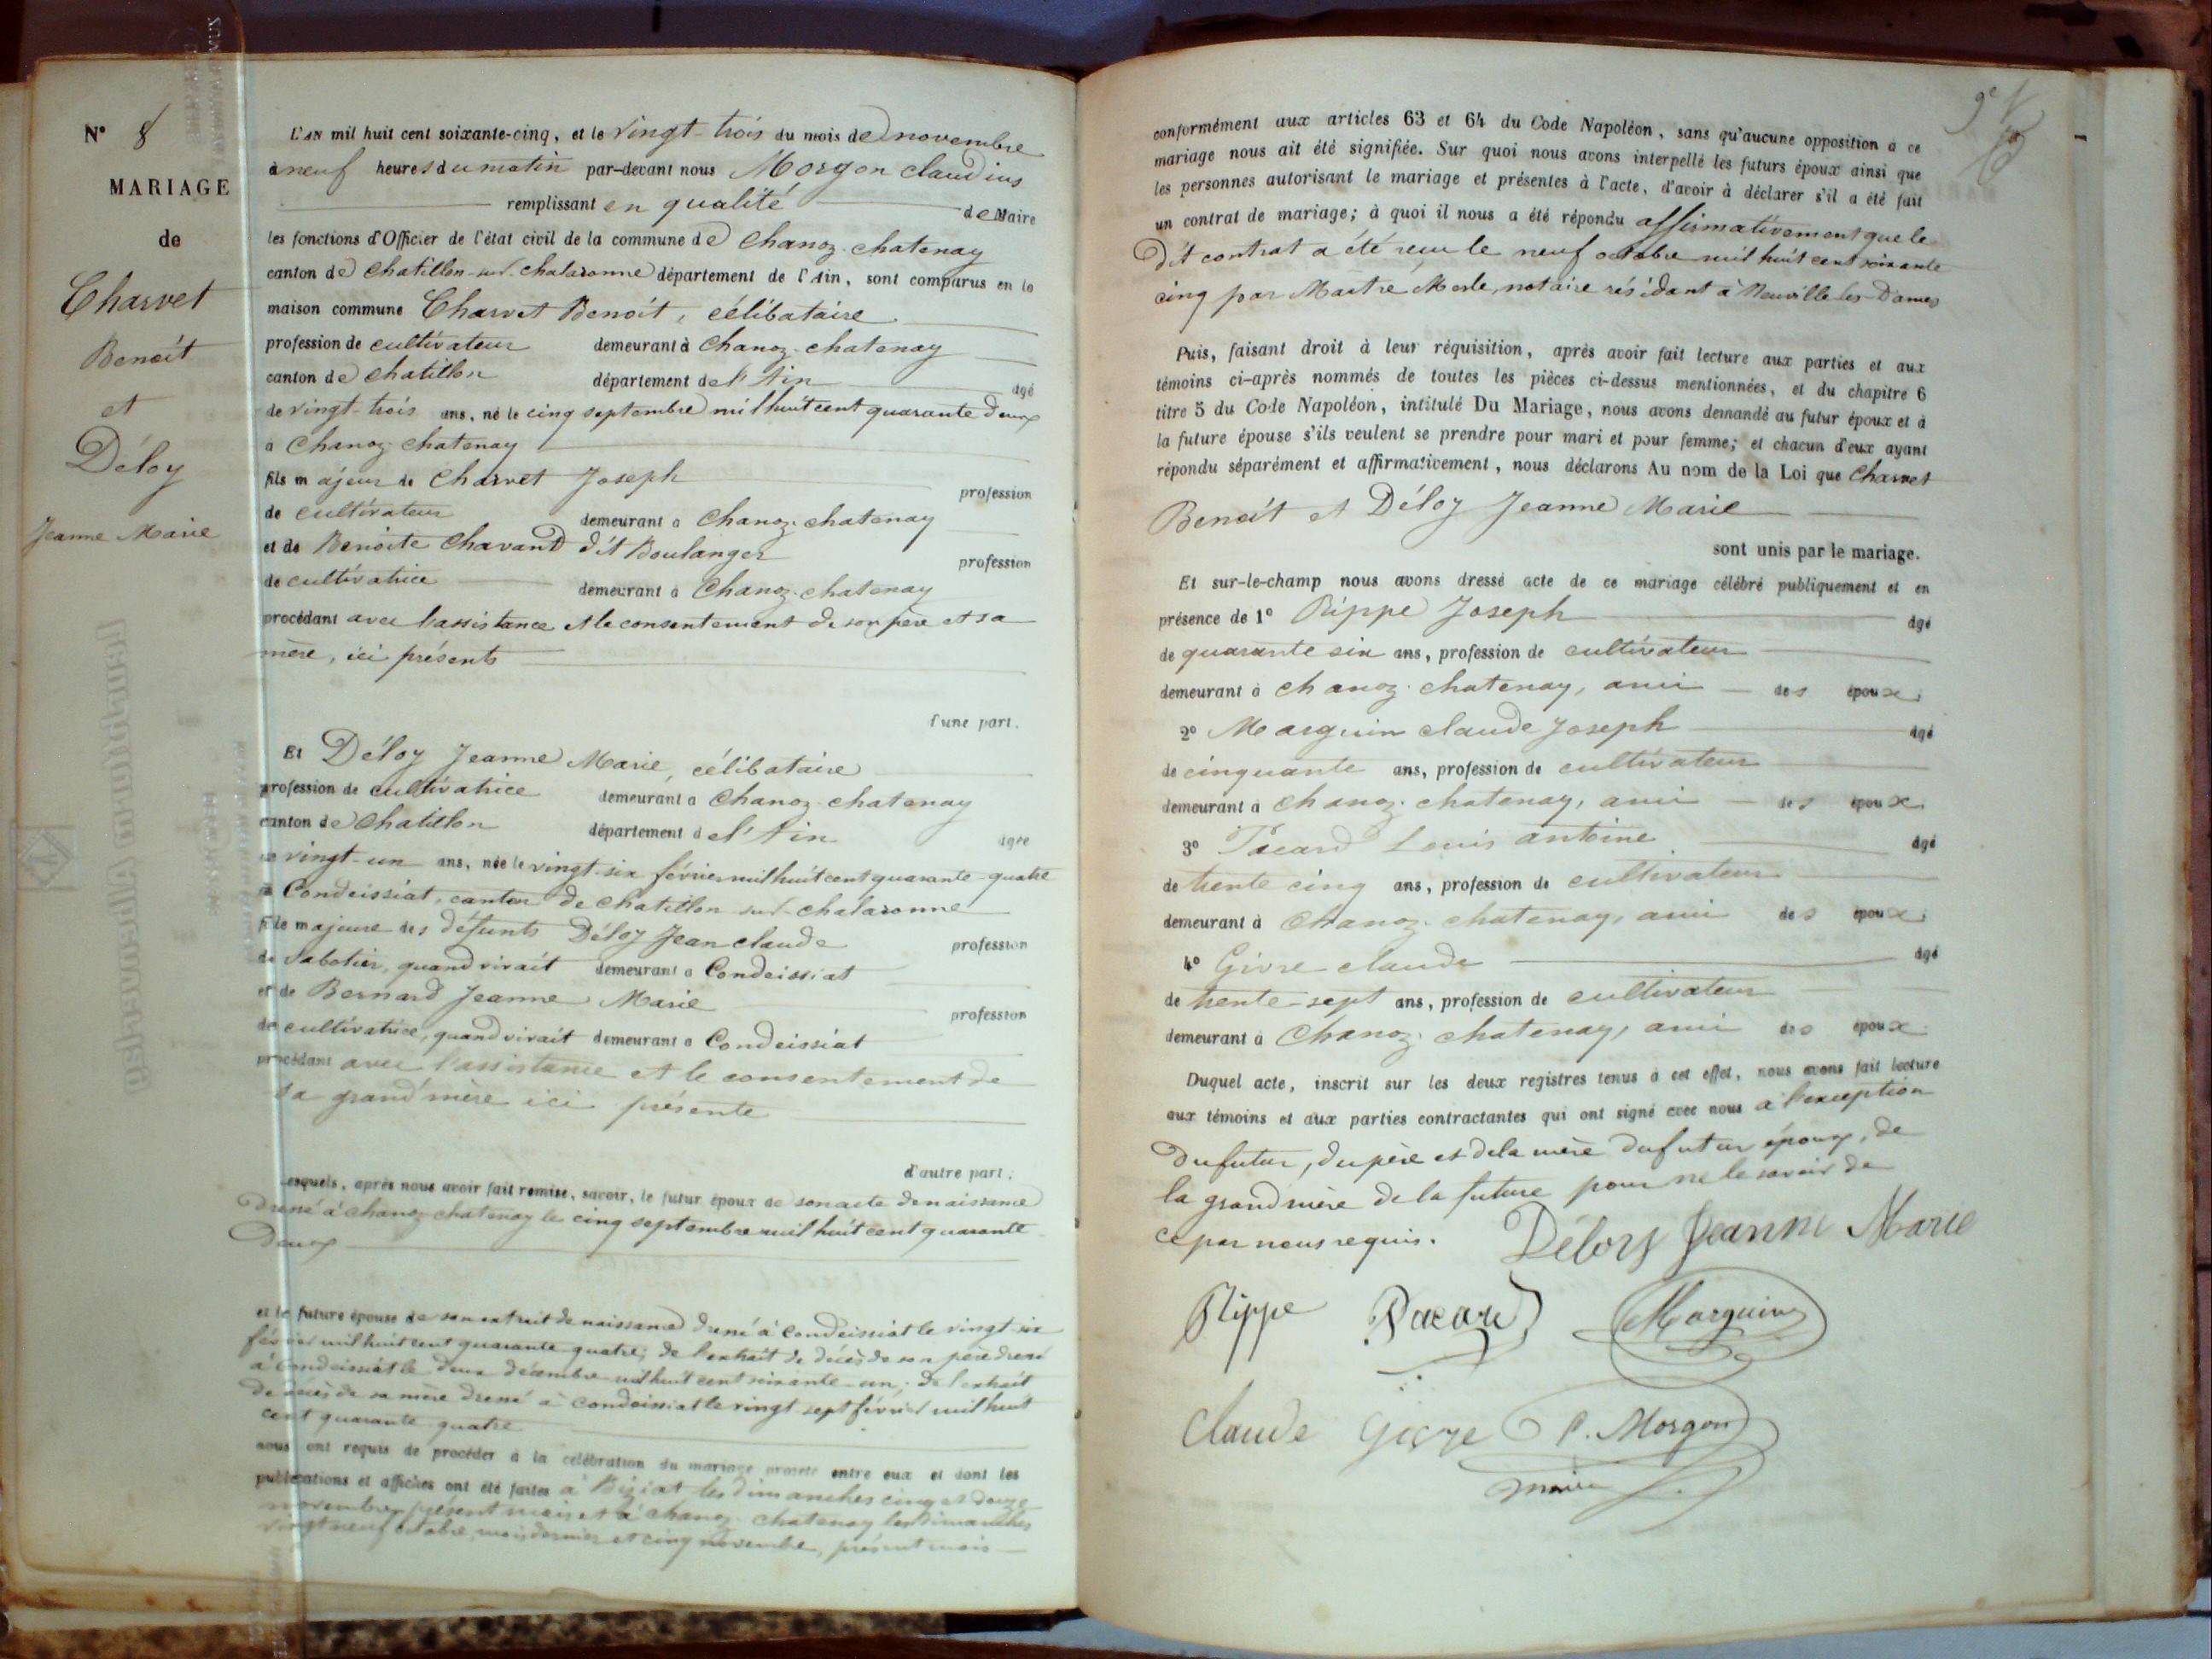 N° 8
MARIAGE
de
Charvet
Benoît
et
Déloy
Jeanne Marie
L'AN mil huit cent soixante-cinq, et le vingt-trois du mois de novembre
à neuf heures du matin par-devant nous Morgon claudius
remplissant en qualité de Maire
les fonctions d'Officier de l'état civil de la commune de Chanoz-chatenay
canton de Chatillon-sur-chalaronne département de l'Ain, sont comparus en la
maison commune Charvet Benoît, célibataire
profession de cultivateur demeurant à Chanoz-chatenay
canton de chatillon département de l'Ain âgé
de vingt-trois ans, né le cinq septembre mil huit cent quarante deux
à Chanoz-chatenay
fils majeur de Charvet Joseph profession
de cultivateur demeurant à Chanoz-chatenay
et de Benoîte Chavand dit Boulanger profession
de cultivatrice demeurant à Chanoz-chatenay
procédant avec l'assistance et le consentement de son père et sa
mère, ici présents
d'une part.
Et Déloy Jeanne Marie, célibataire
profession de cultivatrice demeurant à Chanoz-chatenay
canton de Chatillon département de l'Ain âgée
de vingt-un ans, née le vingt-six février mil huit cent quarante-quatre
à Condeissiat, canton de chatillon-sur-chalaronne
fille majeure des défunts Déloy Jean claude profession
de Sabotier, quand vivait demeurant à Condeissiat
et de Bernard Jeanne Marie profession
de cultivatrice, quand vivait demeurant à Condeissiat
procédant avec l'assistance et le consentement de
sa grand'mère ici présente
d'autre part.
Lesquels, après nous avoir fait remise, savoir, le futur époux de son acte de naissance
dressé à chanoz-chatenay le cinq septembre mil huit cent quarante
deux
et la future épouse de son extrait de naissance dressé à Condeissiat le vingt-six
février mil huit cent quarante quatre; de l'extrait de décès de son père dressé
à Condeissiat le deux décembre mil huit cent soixante-un; de l'extrait
de décès de sa mère dressé à Condeissiat le vingt sept février mil huit
cent quarante quatre
nous ont requis de procéder à la célébration du mariage projeté entre eux et dont les
publications et affiches ont été faites à Biziat les dimanches cinq et douze
novembre, présent mois et à chanoz-chatenay les dimanches
vingt neuf octobre, mois dernier et cinq novembre, présent mois
conformément aux articles 63 et 64 du Code Napoléon, sans qu'aucune opposition à ce
mariage nous ait été signifiée. Sur quoi nous avons interpellé les futurs époux ainsi que
les personnes autorisant le mariage et présentes à l'acte, d'avoir à déclarer s'il a été fait
un contrat de mariage; à quoi il nous a été répondu affirmativement que le
dit contrat a été reçu le neuf octobre mil huit cent soixante
cinq par Maître Merle, notaire résidant à Neuville-les-Dames
Puis, faisant droit à leur réquisition, après avoir fait lecture aux parties et aux
témoins ci-après nommés de toutes les pièces ci-dessus mentionnées, et du chapitre 6
titre 5 du Code Napoléon, intitulé Du Mariage, nous avons demandé au futur époux et à
la future épouse s'ils veulent se prendre pour mari et pour femme; et chacun d'eux ayant
répondu séparément et affirmativement, nous déclarons Au nom de la Loi que Charvet
Benoît et Déloy Jeanne Marie
sont unis par le mariage.
Et sur-le-champ nous avons dressé acte de ce mariage célébré publiquement et en
présence de 1° Rippe Joseph âgé
de quarante six ans, profession de cultivateur
demeurant à chanoz-chatenay, ami des époux.
2° Marguin claude Joseph âgé
de cinquante ans, profession de cultivateur
demeurant à chanoz-chatenay, ami des époux.
3° Pacard Louis antoine âgé
de trente cinq ans, profession de cultivateur
demeurant à Chanoz-chatenay, ami des époux.
4° Givre claude âgé
de trente-sept ans, profession de cultivateur
demeurant à Chanoz-chatenay, ami des époux.
Duquel acte, inscrit sur les deux registres tenus à cet effet, nous avons fait lecture
aux témoins et aux parties contractantes qui ont signé avec nous à l'exception
du futur, du père et de la mère du futur époux, de
la grand'mère de la future pour ne le savoir de
ce par nous requis.
Déloy Jeanne Marie
Rippe Pacard Marguin
Claude Givre C. Morgon
maire